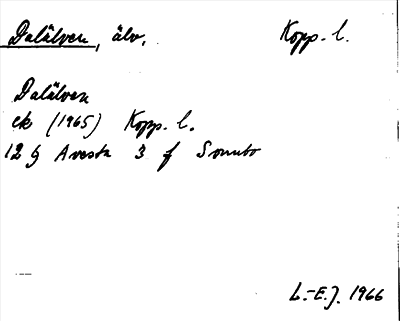 Dalälven, älv. Kopp. l.
Dalälven
ek (1965) Kopp. l.
12 g Avesta 3 f Sonnbo
L.-E.J. 1966